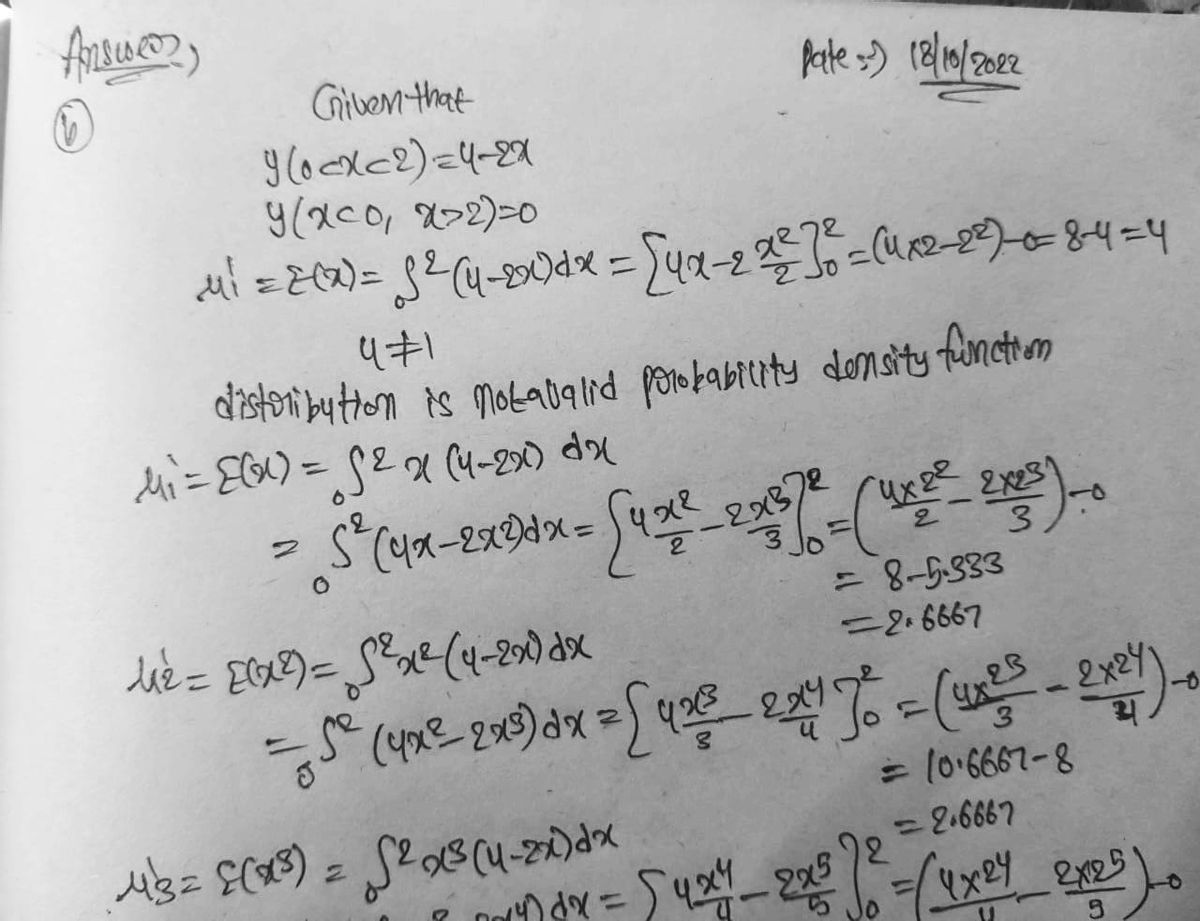 Answer:
Date :-) 18/10/2022
6
Given that
y(0<x<2)=4-2x
y(x<0, x>2)=0
μ1' = E(x) = 0∫2 (4-2x)dx = [4x-2 x²/2]0² = (4×2-2²)-0 = 8-4 = 4
4≠1
distribution is not a valid probability density function
μ1' = E(x) = 0∫2 x (4-2x) dx
= 0∫2 (4x-2x2)dx = [4x²/2 - 2x3/3]0² = (4×2²/2 - 2×23/3)-0
= 8-5.333
= 2.6667
μ2' = E(x2) = 0∫2 x2 (4-2x) dx
= 0∫2 (4x2-2x3)dx = [4x3/3 - 2x4/4]0² = (4×23/3 - 2×24/4)-0
= 10.6667-8
= 2.6667
μ'3 = E(x3) = 0∫2 x3 (4-2x)dx
dx = [4x4/4 - 2x5/5]0² = (4×24/4 - 2×25/5)-0